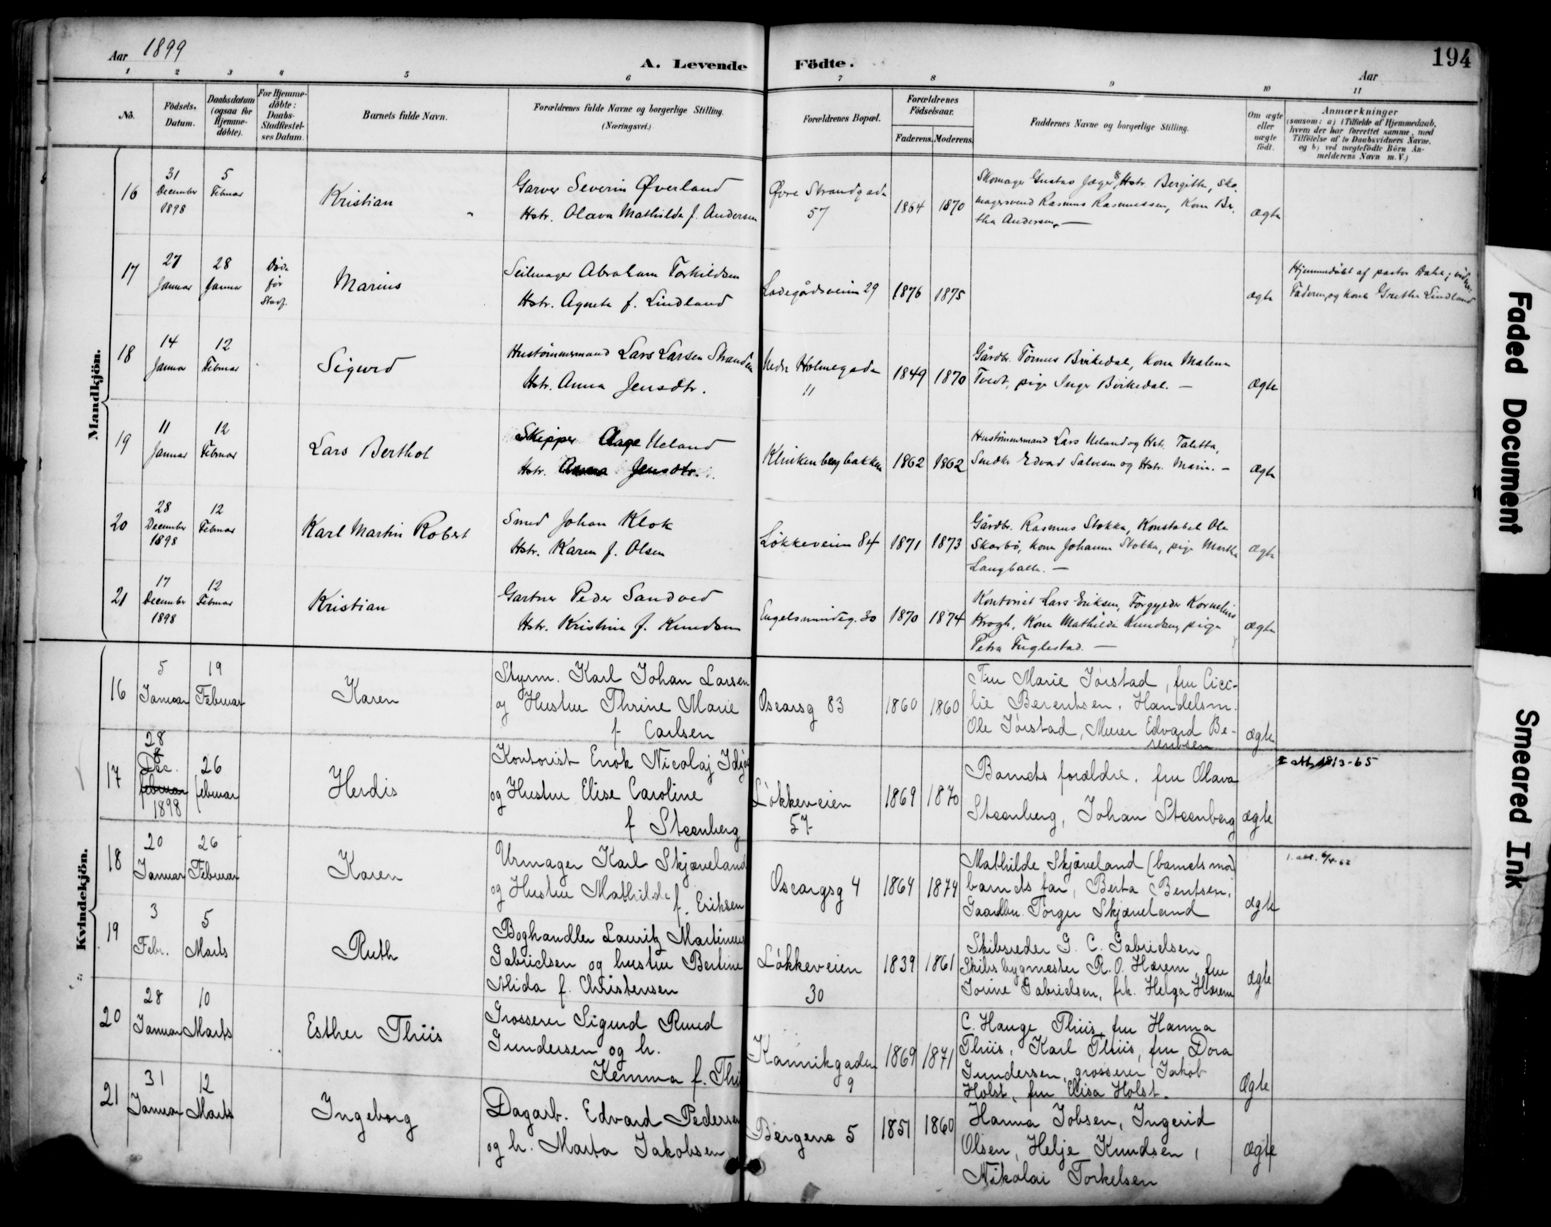 Aar 1899
A. Levende Fødte.
Aar
194
1 2 3 4 5 6 7 8 9 10 11
No. Fødsels-Datum. Daabsdatum (ogsaa for Hjemme-døbte). For Hjemme-døbte: Daabs-Stadfæstel-ses Datum. Barnets fulde Navn. Forældrenes fulde Navne og borgerlige Stilling. (Næringsvei.) Forældrenes Bopæl. Forældrenes Fødselsaar. Faderens. Moderens. Faddernes Navne og borgerlige Stilling. Om ægte eller uægte født. Anmærkninger
Mandkjön.
16 31 December 1898 5 Februar Kristian Garver Severin Øverland
Hstr. Olava Mathilde f. Andersen
Øvre Strandgade 57 1864 1870
Skomager Gustav Jæger, Hstr. Bergitte, Sko-
magersvend Rasmus Rasmussen, Kone Ber-
tha Andersen. —
ægte
17 27 Januar 28 Januar Død før Stadf. Marius Seilmager Abraham Torkildsen
Hstr. Agnete f. Lindland
Ladegårdsveien 29 1876 1875 ægte
Hjemmedøbt af pastor Dahl;
Faderen og kone Grethe Lindland
18 14 Januar 12 Februar Sigurd Hustømmermand Lars Larsen Strand
Hstr. Anna Jensdtr.
Nedre Holmegade 11 1849 1870
Gårdbr. Tønnes Birkedal, Kone Malena
Tvedt, pige Inger Birkedal. —
ægte
19 11 Januar 12 Februar Lars Berthol Skipper Aage Ueland
Hstr. Anna Jensdtr.
Klinkenbergbakken 1862 1862
Hustømmermand Lars Ueland og Hst. Taletta,
Snedker Edvard Salvesen og Hstr. Marie. —
ægte
20 28 December 1898 12 Februar Karl Martin Robert Smed Johan Klok
Hstr. Karen f. Olsen
Løkkeveien 84 1871 1873
Gårdbr. Rasmus Stokka, Konstabel Ole
Skarbø, kone Johanna Stokka, pige Martha
Langballe. —
ægte
21 17 December 1898 12 Februar Kristian Gartner Peder Sandved
Hstr. Kristine f. Knudsen
Engelsmindeg. 30 1870 1874
Kontorist Lars Eriksen, Forgylder Kornelius
Krogh, Kone Mathilde Knudsen, pige
Petra Fuglestad. —
ægte
Kvindekjön.
16 5 Januar 19 Februar Karen Styrm. Karl Johan Larsen
og Hustru Thrine Marie
f Carlsen
Oscarsg 83 1860 1860
Fru Marie Jørstad, fru Ceci-
lie Berentsen, Handelsm.
Ole Jørstad, Murer Edvard Be-
rentsen
ægte
17 28 Dec. februar 1898 26 februar Herdis Kontorist Enok Nicolaj
og Hustru Elise Caroline
f Steenberg
Løkkeveien 57 1869 1870
Barnets forældre, fru Olava
Steenberg, Johan Steenberg
ægte
18 20 Januar 26 Februar Karen Urmager Karl Skjæveland
og Hustru Mathilde f. Eriksen
Oscargsg 4 1864 1874
Mathilde Skjæveland (barnets mor)
barnets far, Berta Bentsen,
Gaardbr. Torger Skjæveland
ægte
19 3 Febr. 5 Marts Ruth Boghandler Lauritz Martinius
Gabrielsen og hustru Bertine
Alida f. Christensen
Løkkeveien 30 1839 1861
Skibsreder G. C. Gabrielsen
Skibsbygmester R. O. Harem, fru
Jorine Gabrielsen, frk. Helga Harem
ægte
20 28 Januar 10 Marts Esther Thiis Grosserer Sigurd Ruud
Gundersen og h.
Kemma f. Thiis
Kannikgaden 9 1869 1871
C. Hauge Thiis, fru Hanna
Thiis, Karl Thiis, fru Dora
Gundersen, grosserer Jakob
Holst, fru Elisa Holst.
Ægte
21 31 Januar 12 Marts Ingeborg Dagarb. Edvard Pedersen
og h. Marta Jakobsen
Bergene 5 1851 1860
Hanna Jobsen, Ingerid
Olsen, Helje Knudsen,
Nikolai Torkelsen
ægte
Faded Document
Smeared Ink